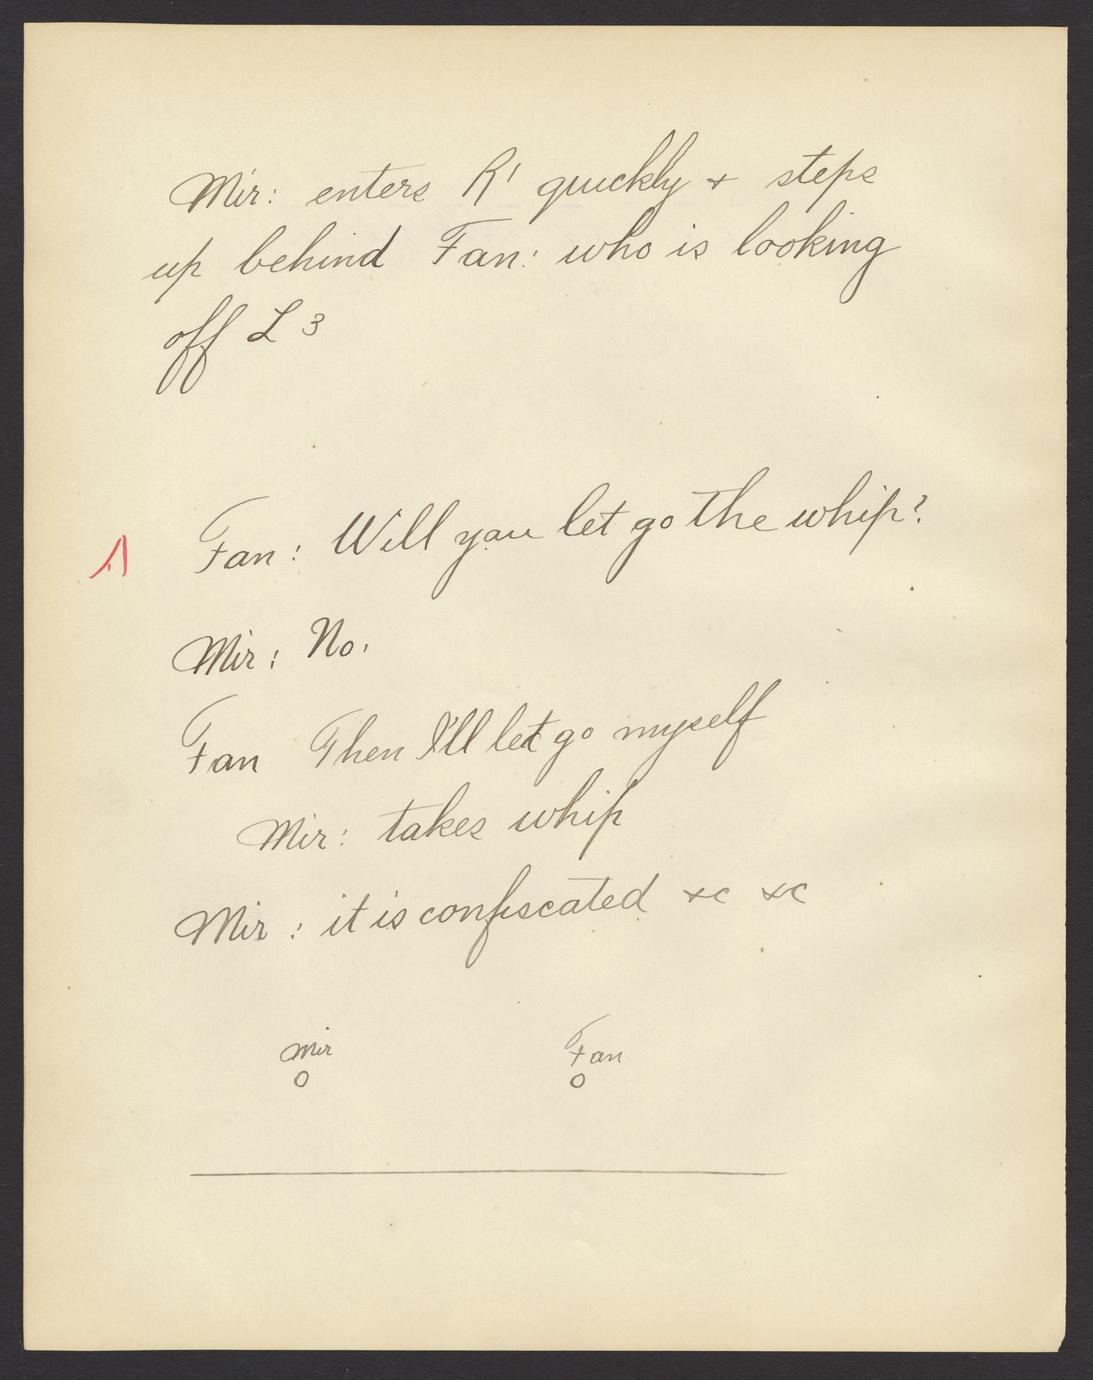 Mir: enters R1 quickly + steps
up behind Fan: who is looking
off L 3
Fan: Will you let go the whip?
Mir: No.
Fan Then I'll let go myself
Mir: takes whip
Mir: it is confiscated &c &c
Mir Fan